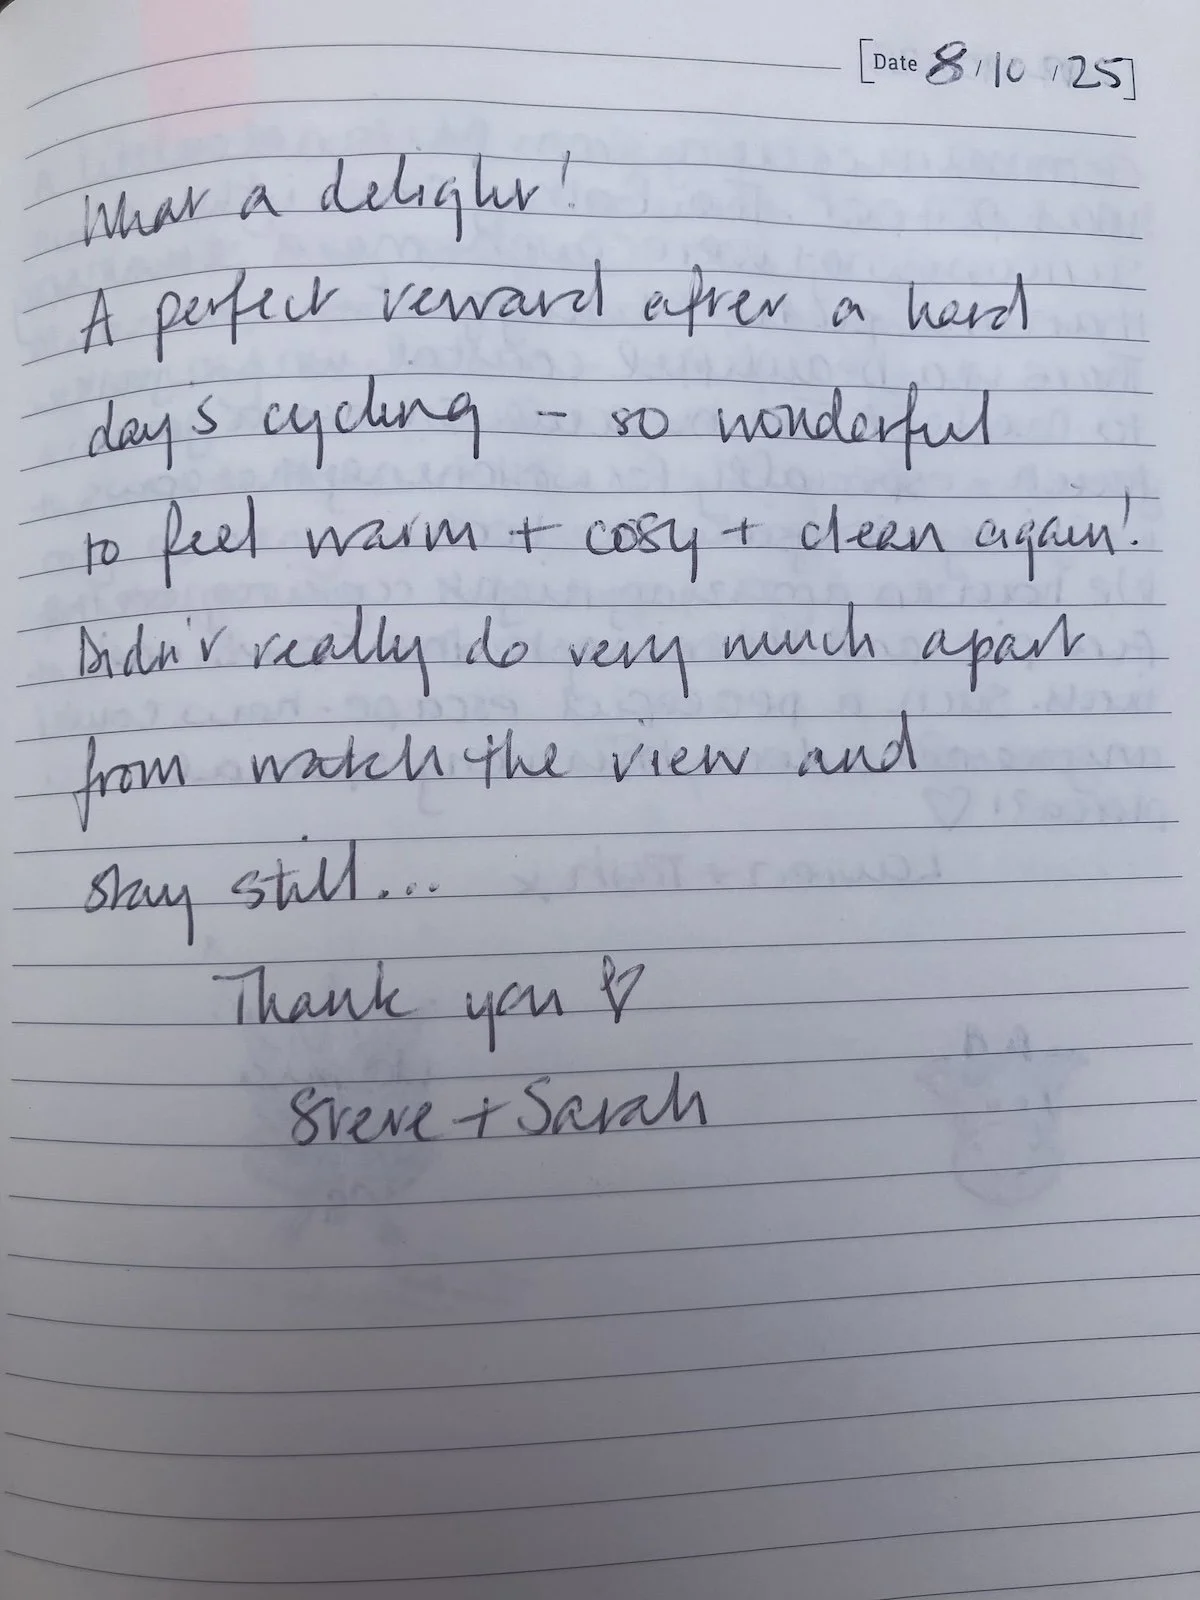 [Date 8/10/25]
What a delight!
A perfect reward after a hard
day's cycling - so wonderful
to feel warm + cosy + clean again!
Didn't really do very much apart
from watch the view and
stay still...
Thank you ♡
Steve + Sarah